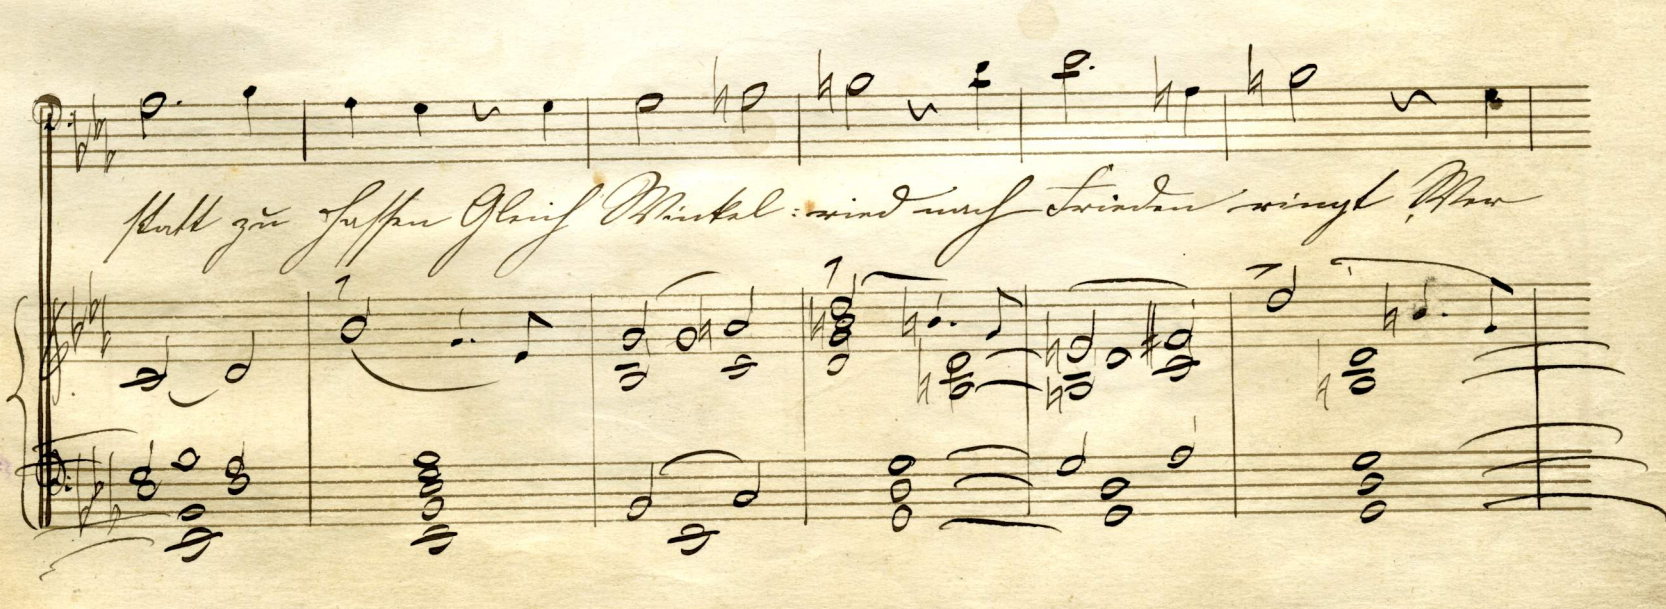 statt zu hassen Gleich Winkel:ried nach Frieden ringt Wer